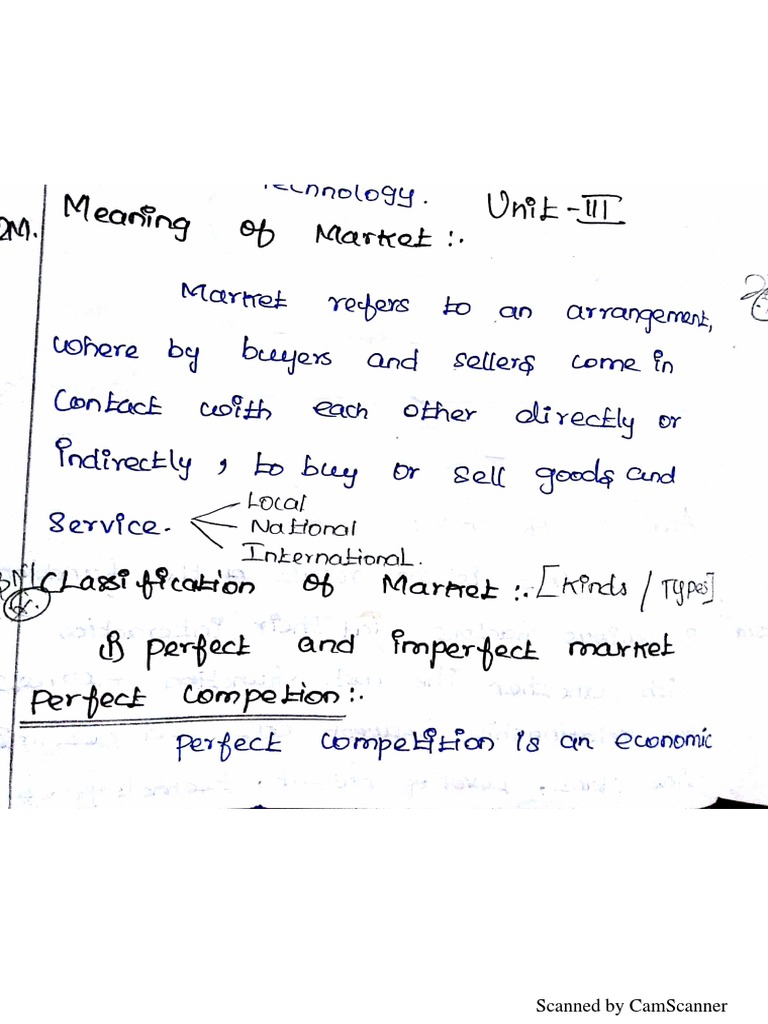 Technology. Unit - III
2M. Meaning of Market :.
Market refers to an arrangement,
where by buyers and sellers come in
Contact with each other directly or
indirectly, to buy or sell goods and
Service. Local
National
International.
Classification of Market :. [Kinds / Types]
i) perfect and imperfect market
Perfect Competion :.
Perfect competition is an economic
Scanned by CamScanner